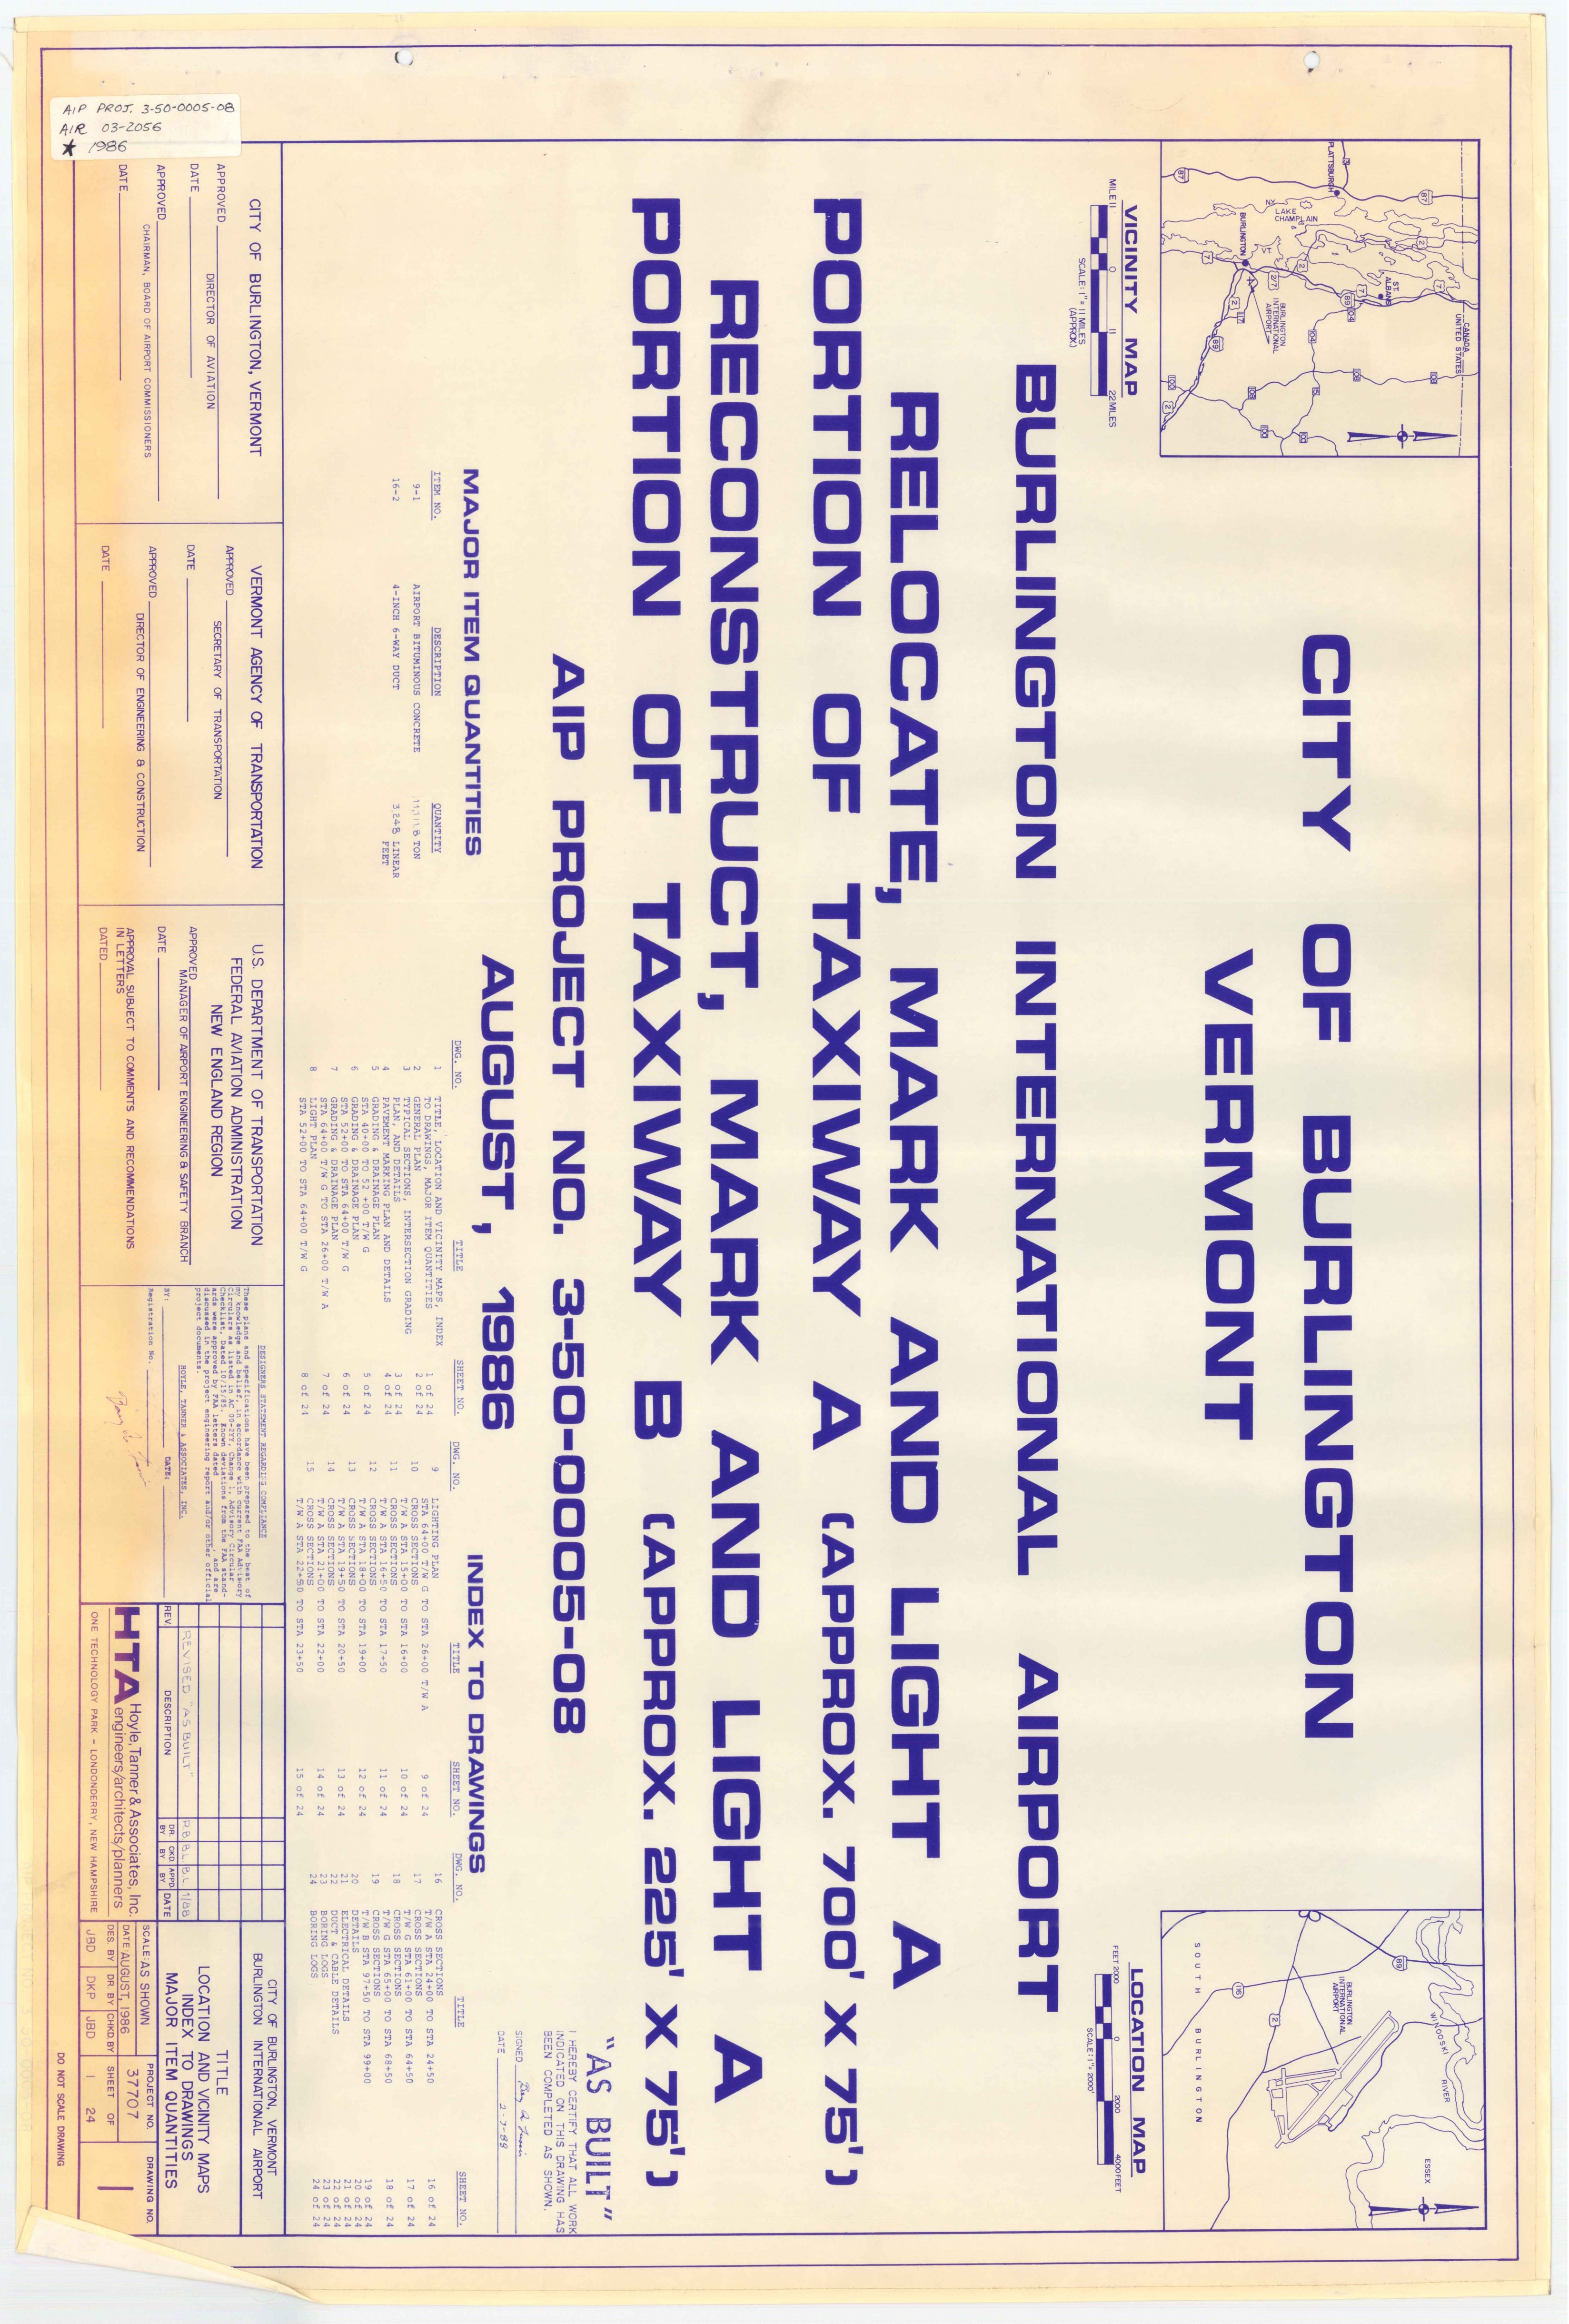 AIP PROJ. 3-50-0005-08
AIR 03-2056
★ 1986
CITY OF BURLINGTON
VERMONT
BURLINGTON INTERNATIONAL AIRPORT
RELOCATE, MARK AND LIGHT A
PORTION OF TAXIWAY A (APPROX. 700' X 75')
RECONSTRUCT, MARK AND LIGHT A
PORTION OF TAXIWAY B (APPROX. 225' X 75')
AIP PROJECT NO. 3-50-0005-08
AUGUST, 1986
PLATTSBURGH
87
87
NY
LAKE
CHAMPLAIN
VT
BURLINGTON
ST.
ALBANS
BURLINGTON
INTERNATIONAL
AIRPORT
CANADA
UNITED STATES
2
7
89
104
VICINITY MAP
MILE 11 0 11 22 MILES
SCALE: 1" = 11 MILES
(APPROX.)
89
WINOOSKI
RIVER
ESSEX
BURLINGTON
INTERNATIONAL
AIRPORT
2
116
SOUTH BURLINGTON
LOCATION MAP
FEET 2000 0 2000 4000 FEET
SCALE: 1" = 2000'
MAJOR ITEM QUANTITIES
ITEM NO. DESCRIPTION QUANTITY
9-1 AIRPORT BITUMINOUS CONCRETE 11,111.8 TON
16-2 4-INCH 6-WAY DUCT 3248 LINEAR
FEET
INDEX TO DRAWINGS
DWG. NO. TITLE SHEET NO.
1 TITLE, LOCATION AND VICINITY MAPS, INDEX
TO DRAWINGS, MAJOR ITEM QUANTITIES 1 of 24
2 GENERAL PLAN 2 of 24
3 TYPICAL SECTIONS, INTERSECTION GRADING
PLAN, AND DETAILS 3 of 24
4 PAVEMENT MARKING PLAN AND DETAILS 4 of 24
5 GRADING & DRAINAGE PLAN
STA 40+00 TO 52+00 T/W G 5 of 24
6 GRADING & DRAINAGE PLAN
STA 52+00 TO STA 64+00 T/W G 6 of 24
7 GRADING & DRAINAGE PLAN
STA 64+00 T/W G TO STA 26+00 T/W A 7 of 24
8 LIGHT PLAN
STA 52+00 TO STA 64+00 T/W G 8 of 24
DWG. NO. TITLE SHEET NO.
9 LIGHTING PLAN
STA 64+00 T/W G TO STA 26+00 T/W A 9 of 24
10 CROSS SECTIONS
T/W A STA 15+00 TO STA 16+00 10 of 24
11 CROSS SECTIONS
T/W A STA 16+50 TO STA 17+50 11 of 24
12 CROSS SECTIONS
T/W A STA 18+00 TO STA 19+00 12 of 24
13 CROSS SECTIONS
T/W A STA 19+50 TO STA 20+50 13 of 24
14 CROSS SECTIONS
T/W A STA 21+00 TO STA 22+00 14 of 24
15 CROSS SECTIONS
T/W A STA 22+50 TO STA 23+50 15 of 24
DWG. NO. TITLE SHEET NO.
16 CROSS SECTIONS
T/W A STA 24+00 TO STA 24+50 16 of 24
17 CROSS SECTIONS
T/W G STA 61+00 TO STA 64+50 17 of 24
18 CROSS SECTIONS
T/W G STA 65+00 TO STA 68+50 18 of 24
19 CROSS SECTIONS
T/W B STA 97+50 TO STA 99+00 19 of 24
20 DETAILS 20 of 24
21 ELECTRICAL DETAILS 21 of 24
22 DUCT & CABLE DETAILS 22 of 24
23 BORING LOGS 23 of 24
24 BORING LOGS 24 of 24
"AS BUILT"
I HEREBY CERTIFY THAT ALL WORK
INDICATED ON THIS DRAWING HAS
BEEN COMPLETED AS SHOWN.
SIGNED
DATE 2-7-89
CITY OF BURLINGTON, VERMONT
APPROVED
DIRECTOR OF AVIATION
DATE
APPROVED
CHAIRMAN, BOARD OF AIRPORT COMMISSIONERS
DATE
VERMONT AGENCY OF TRANSPORTATION
APPROVED
SECRETARY OF TRANSPORTATION
DATE
APPROVED
DIRECTOR OF ENGINEERING & CONSTRUCTION
DATE
U.S. DEPARTMENT OF TRANSPORTATION
FEDERAL AVIATION ADMINISTRATION
NEW ENGLAND REGION
APPROVED
MANAGER OF AIRPORT ENGINEERING & SAFETY BRANCH
DATE
APPROVAL SUBJECT TO COMMENTS AND RECOMMENDATIONS
IN LETTERS
DATED
DESIGNERS STATEMENT REGARDING COMPLIANCE
These plans and specifications have been prepared to the best of
my knowledge and belief, in accordance with current FAA Advisory
Circulars as listed in AC 00-2YY, Change 1, Advisory Circular
Checklist, Dated 10/15/85. Known deviations from the FAA stand-
ards were approved by FAA letters dated , and are
discussed in the project engineering report and/or other official
project documents.
HOYLE, TANNER & ASSOCIATES, INC.
BY: DATE:
Registration No.
REVISED "AS BUILT" RB BL BL 1/88
REV. DESCRIPTION DR. BY CKD. BY APPD. BY DATE
HTA Hoyle, Tanner & Associates, Inc.
engineers/architects/planners
ONE TECHNOLOGY PARK - LONDONDERRY, NEW HAMPSHIRE
CITY OF BURLINGTON, VERMONT
BURLINGTON INTERNATIONAL AIRPORT
TITLE
LOCATION AND VICINITY MAPS
INDEX TO DRAWINGS
MAJOR ITEM QUANTITIES
SCALE: AS SHOWN
DATE: AUGUST, 1986
DES. BY DR. BY CHKD BY
JBD DKP JBD
PROJECT NO.
37707
SHEET OF
1 24
DRAWING NO.
1
DO NOT SCALE DRAWING